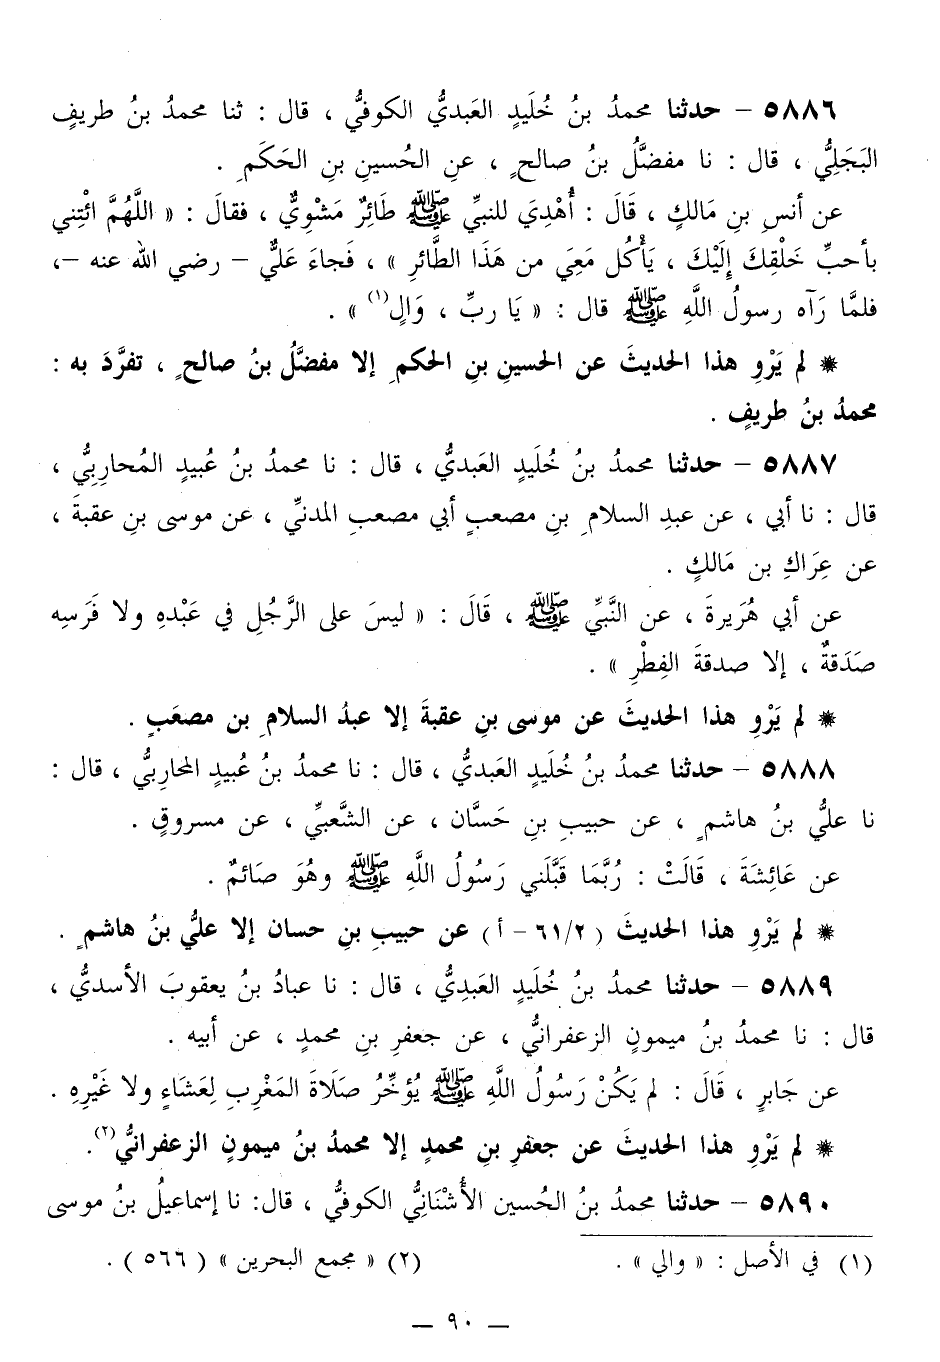 ٥٨٨٦ – حدثنا محمدُ بنُ خُلَيدٍ العَبديُّ الكوفيُّ ، قال : ثنا محمدُ بنُ طريفٍ
البَجَلِيُّ ، قال : نا مفضَّلُ بنُ صالحٍ ، عنِ الحُسينِ بنِ الحَكَمِ .
عن أنسِ بنِ مَالكٍ ، قَالَ : أُهْدِيَ للنبيِّ ﷺ طَائِرٌ مَشْوِيٌّ ، فقالَ : « اللَّهُمَّ ائْتِني
بأحبِّ خَلْقِكَ إِلَيْكَ ، يَأْكُل مَعِيَ من هَذَا الطَّائرِ » ، فَجاءَ عَليٌّ – رضي الله عنه –،
فلمَّا رَآه رسولُ اللَّهِ ﷺ قال : « يَا ربِّ ، وَالٍ(١) » .
* لم يَرْوِ هذا الحديثَ عن الحسينِ بنِ الحكمِ إلا مفضَّلُ بنُ صالحٍ ، تفرَّدَ به :
محمدُ بنُ طريفٍ .
٥٨٨٧ – حدثنا محمدُ بنُ خُلَيدٍ العَبديُّ ، قال : نا محمدُ بنُ عُبيدٍ المُحارِبِيُّ ،
قال : نا أبي ، عن عبدِ السلامِ بنِ مصعبٍ أبي مصعبٍ المدنيِّ ، عن موسى بنِ عقبةَ ،
عن عِرَاكِ بن مَالكٍ .
عن أبي هُرَيرةَ ، عن النَّبيِّ ﷺ ، قَالَ : « ليسَ على الرَّجُلِ في عَبْدهِ ولا فَرَسِه
صَدَقةٌ ، إلا صدقةَ الفِطْرِ » .
* لم يَرْوِ هذا الحديثَ عن موسى بنِ عقبةَ إلا عبدُ السلامِ بن مصعَبٍ .
٥٨٨٨ – حدثنا محمدُ بنُ خُلَيدٍ العَبديُّ ، قال : نا محمدُ بنُ عُبيدٍ المحاربيُّ ، قال :
نا عليُّ بنُ هاشمٍ ، عن حبيبِ بنِ حَسَّان ، عن الشَّعبيِّ ، عن مسروقٍ .
عن عَائِشَةَ ، قَالَتْ : رُبَّمَا قَبَّلَني رَسُولُ اللَّهِ ﷺ وهُوَ صَائمٌ .
* لم يَرْوِ هذا الحديثَ ( ٦١/٢ – أ ) عن حبيبِ بنِ حسان إلا عليُّ بنُ هاشمٍ .
٥٨٨٩ – حدثنا محمدُ بنُ خُلَيدٍ العَبدِيُّ ، قال : نا عبادُ بنُ يعقوبَ الأسديُّ ،
قال : نا محمدُ بنُ ميمونٍ الزعفرانيُّ ، عن جعفرِ بنِ محمدٍ ، عن أبيه .
عن جَابرٍ ، قَالَ : لم يَكُنْ رَسُولُ اللَّهِ ﷺ يُؤخِّرُ صَلَاةَ المَغْربِ لِعَشَاءٍ ولا غَيْرِهِ .
* لم يَرْوِ هذا الحديثَ عن جعفرِ بنِ محمدٍ إلا محمدُ بنُ ميمونٍ الزعفرانيُّ(٢).
٥٨٩٠ – حدثنا محمدُ بنُ الحُسين الأُشْنَانِيُّ الكوفيُّ ، قال: نا إسماعيلُ بنُ موسى
(١) في الأصل : « والي » . (٢) « مجمع البحرين » ( ٥٦٦ ) .
— ٩٠ —